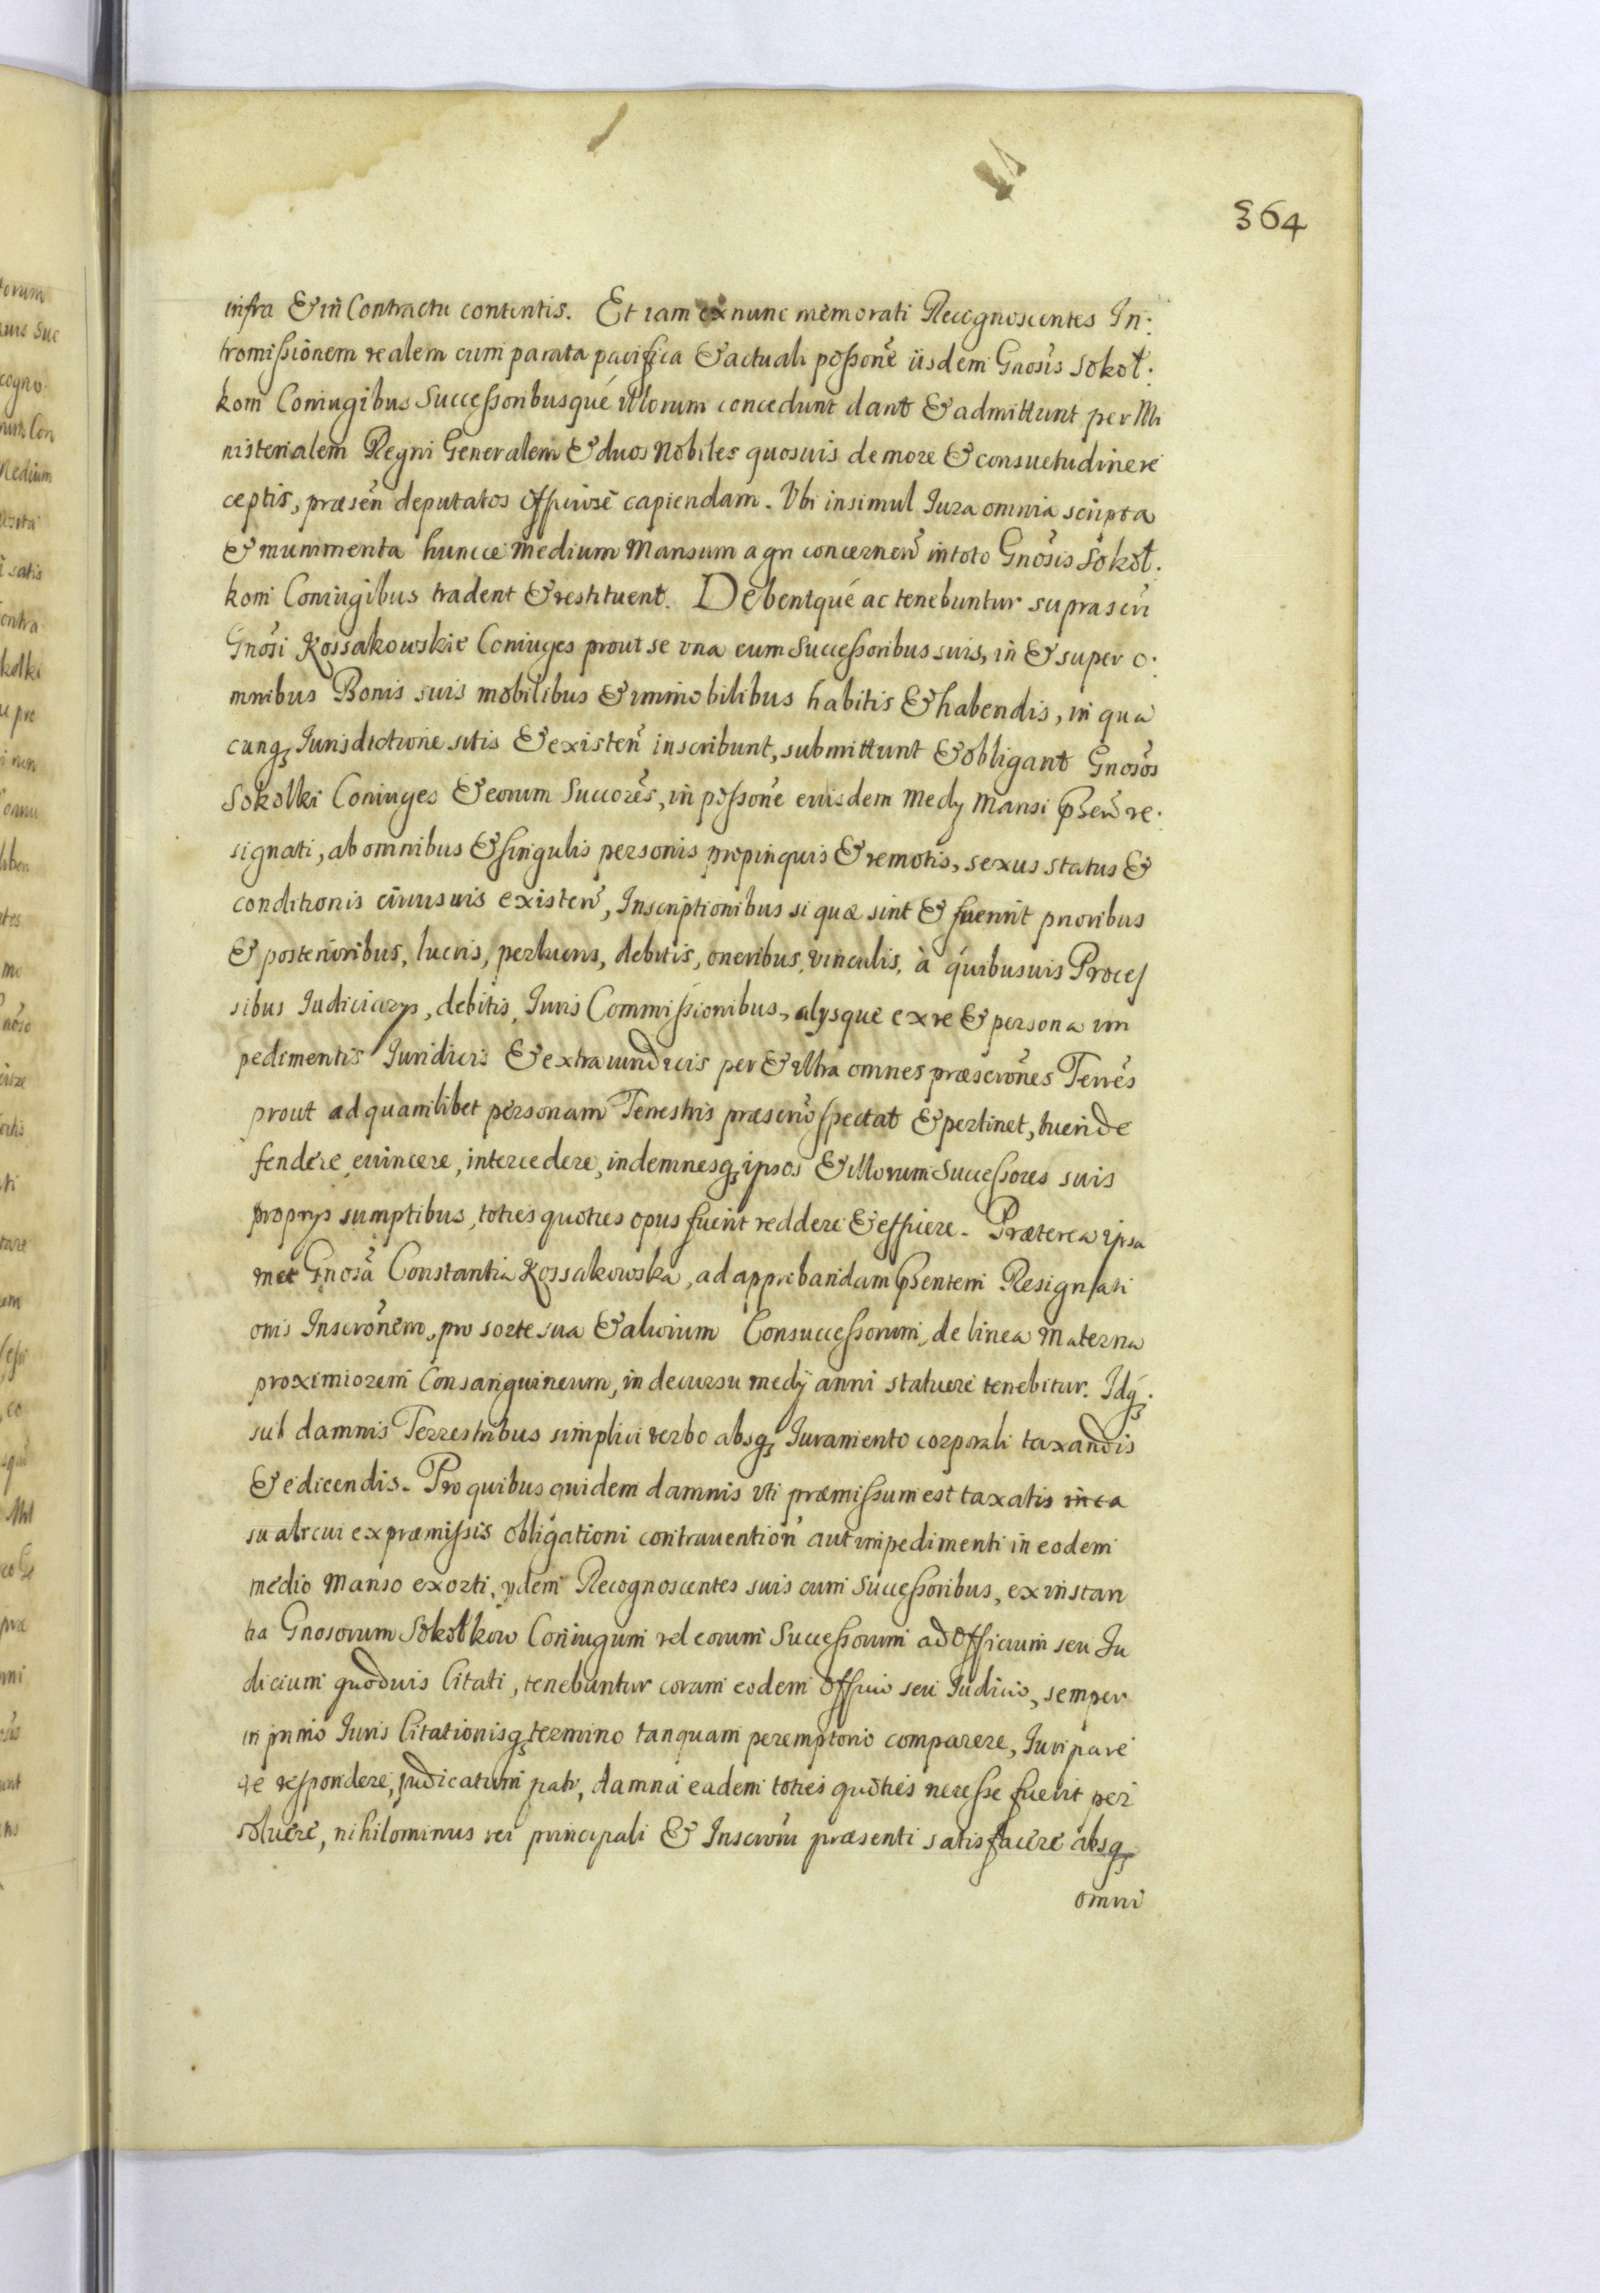 364
infra & in Contractu contentis. Et iam ex nunc memorati Recognoscentes In:
tromissionem realem cum parata pacifica & actuali possone iisdem Gnosis Sokoł:
kom Coniugibus Successoribusqué illorum concedunt dant & admittunt per Mi
nisterialem Regni Generalem & duos Nobiles quosuis de more & consuetudine re
ceptis, præsen deputatos Officiose capiendam. Vbi insimul Iura omnia scripta
& munimenta huncce medium Mansum agri concernen in toto Gnosis Sokoł:
kom Coniugibus tradent & restituent. Debentqué ac tenebuntur suprascri
Gnosi Kossakowskie Coniuges prout se vna cum Successoribus suis, in & super o:
mnibus Bonis suis mobilibus & immobilibus habitis & habendis, in qua
cunq Iurisdictione sitis & existen inscribunt, submittunt & obligant Gnosos
Sokolki Coniuges & eorum Succores, in possone eiusdem Medy Mansi psen re:
signati, ab omnibus & singulis personis propinquis & remotis, sexus status &
conditionis cuiusuis existen, Inscriptionibus si quæ sint & fuerint prioribus
& posterioribus, lucris, perlucris, debitis, oneribus, vinculis, à quibusuis Proces
sibus Iudiciarys, debitis, Iuris Commissionibus, alysque ex re & persona im
pedimentis Iuridicis & extraiuridicis per & vltra omnes præscrones Terres
prout ad quamlibet personam Terrestris præscrio spectat & pertinet, tueri de
fendere, euincere, intercedere, indemnesq ipsos & illorum Successores suis
proprys sumptibus, toties quoties opus fuerit reddere & efficere. Præterea ipsa
met Gnosa Constantia Kossakowska, ad approbandam psentem Resignati
onis Inscronem, pro sorte sua & aliorum Consuccessorum, de linea Materna
proximiorem Consanguineum, in decursu medy anni statuere tenebitur. Idq:
sub damnis Terrestribus simplici verbo absq Iuramento corporali taxandis
& edicendis. Pro quibus quidem damnis vti præmissum est taxatis in ca
su alicui ex præmissis obligationi contrauention aut impedimenti in eodem
medio Manso exorti, ydem Recognoscentes suis cum Successoribus, ex instan
tia Gnosorum Sokołkow Coniugum vel eorum Successorum ad Officium seu Iu
dicium quoduis Citati, tenebuntur coram eodem Officio seu Iudicio, semper
in primo Iuris Citationisq termino tanquam peremptorio comparere, Iuri pare
re respondere, judicatum pati, damna eadem toties quoties necesse fuerit per
soluere, nihilominus rei principali & Inscrioni præsenti satisfacere absq
omni